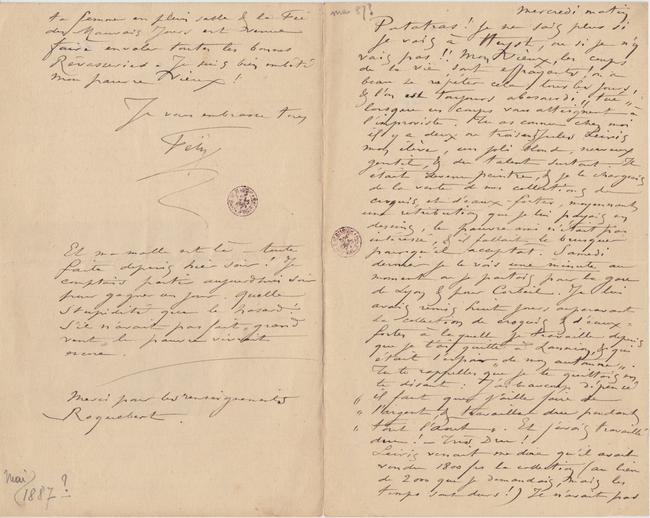 mercredi matin
Patatras ! Je ne sais plus si
je vais à Heyst, ou si je n'y
vais pas !! Mon Vieux, les coups
de la vie sont effrayants ! on a
beau se répéter cela tous les jours,
& l'on est toujours abasourdi,
lorsque ces coups vous atteignent à
l'improviste. Tu as connu chez moi
il y a deux ou trois ans Jules
mon élève, un joli blond, nerveux
gentil, & du talent surtout. Il
était devenu peintre, & je le chargeais
de la vente de mes collections de
croquis, et d'eaux-fortes, moyennant
une rétribution que je lui payais en
dessins, le pauvre ami n'était pas
intéressé, & il fallait le brusquer
pour qu'il acceptat. Samedi
dernier je le vois une minute au
moment où je partais pour la gare
de Lyon & pour Corbeil. Je lui
avais remis huit jours auparavant
la collection de croquis & d'eaux-
fortes à laquelle je travaille depuis
que je t'ai quitté à & qui
était l'espoir "de mon automne".
Tu te rappelles que je te quittais en
te disant : J'ai beaucoup dépensé
" il faut que j'aille faire de
" l'argent & travailler dur pendant
" tout l'Aout ". Et j'avais travaillé
dur ! – Très Dur !
venait me dire qu'il avait
vendu 1800 frs la collection (au lieu
de 2000 que je demandais, mais les
temps sont durs !) Je n'avais pas
mai 87?
ta femme en plein sable & la Fée
des Mauvais Jours est venue
faire envoler toutes les bonnes
Rêvasseries. Je suis bien embêté
mon pauvre Vieux !
Je vous embrasse tous
Fély
Et ma malle est là – toute
faite depuis hier soir ! Je
comptais partir aujourd'hui soir
pour gagner un jour. Quelle
stupidité que le hasard !
S'il n'avait pas fait grand
vent, le pauvre vivrait
encore.
Merci pour les renseignements
Roquebert.
mai
1887 ?